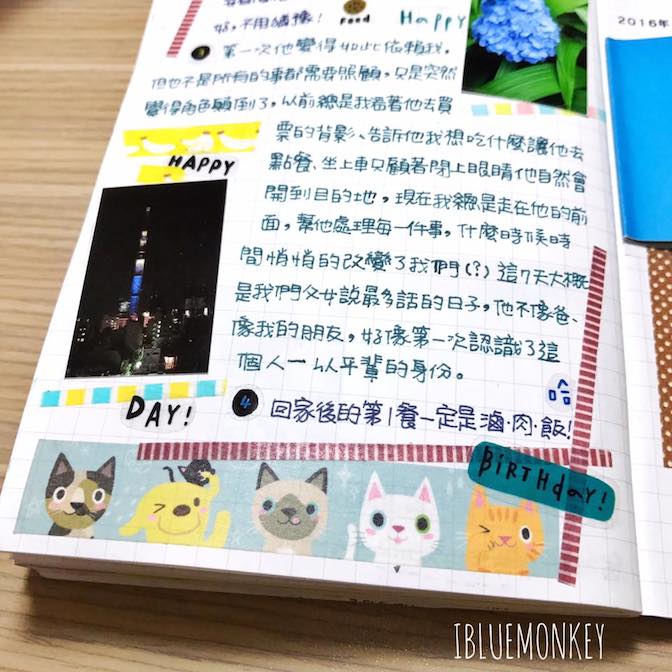 好，不用猶豫！
Food
Happy
2016年
3 第一次他變得如此依賴我。
但也不是所有的事都需要照顧，只是突然
覺得角色顛倒了，以前總是我看著他去買
票的背影、告訴他我想吃什麼讓他去
點餐、坐上車只顧著閉上眼睛他自然會
開到目的地，現在我總是走在他的前
面，幫他處理每一件事，什麼時候時
間悄悄的改變了我們(?) 這7天大概
是我們父女說最多話的日子，他不像爸、
像我的朋友，好像第一次認識了這
個人一以平輩的身份。
HAPPY
DAY!
哈
4 回家後的第1餐一定是滷·肉·飯!
BiRTHdaY!
IBLUEMONKEY